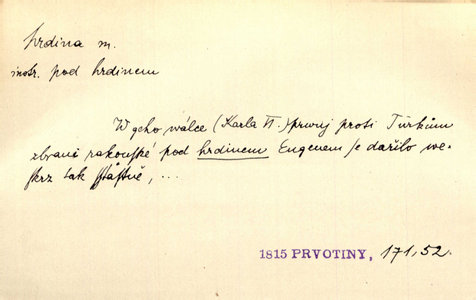 hrdina m.
instr. pod hrdinem
W geho wálce (Karla VI.) prwnj proti Turkům
zbrani rakouſké pod hrdinem Eugenem ſe dařilo we-
ſkrz tak ſſťaſtně, ...
1815 PRVOTINY, 171, 52.